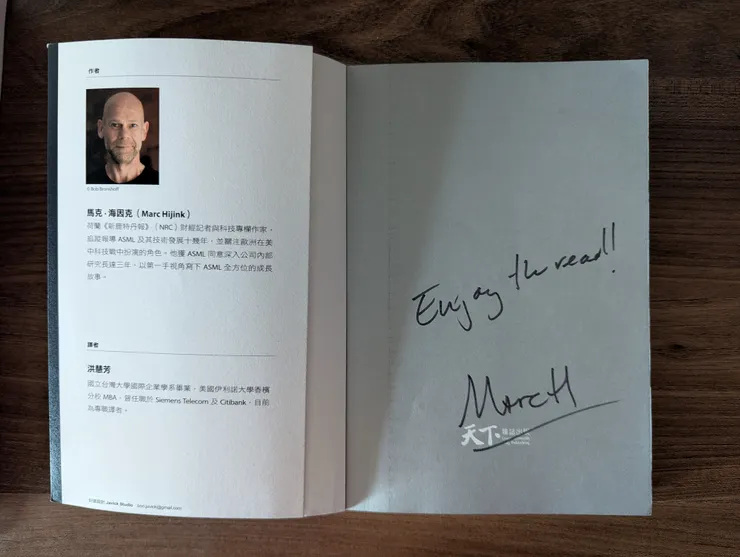 作者
馬克·海因克（Marc Hijink）
荷蘭《新鹿特丹報》（NRC）財經記者與科技專欄作家，
追蹤報導 ASML 及其技術發展十幾年，並關注歐洲在美
中科技戰中扮演的角色。他獲 ASML 同意深入公司內部
研究長達三年，以第一手視角寫下 ASML 全方位的成長
故事。
譯者
洪慧芳
國立台灣大學國際企業學系畢業，美國伊利諾大學香檳
分校 MBA，曾任職於 Siemens Telecom 及 Citibank，目前
為專職譯者。
Enjoy the read!!
MarcH
天下 雜誌出版